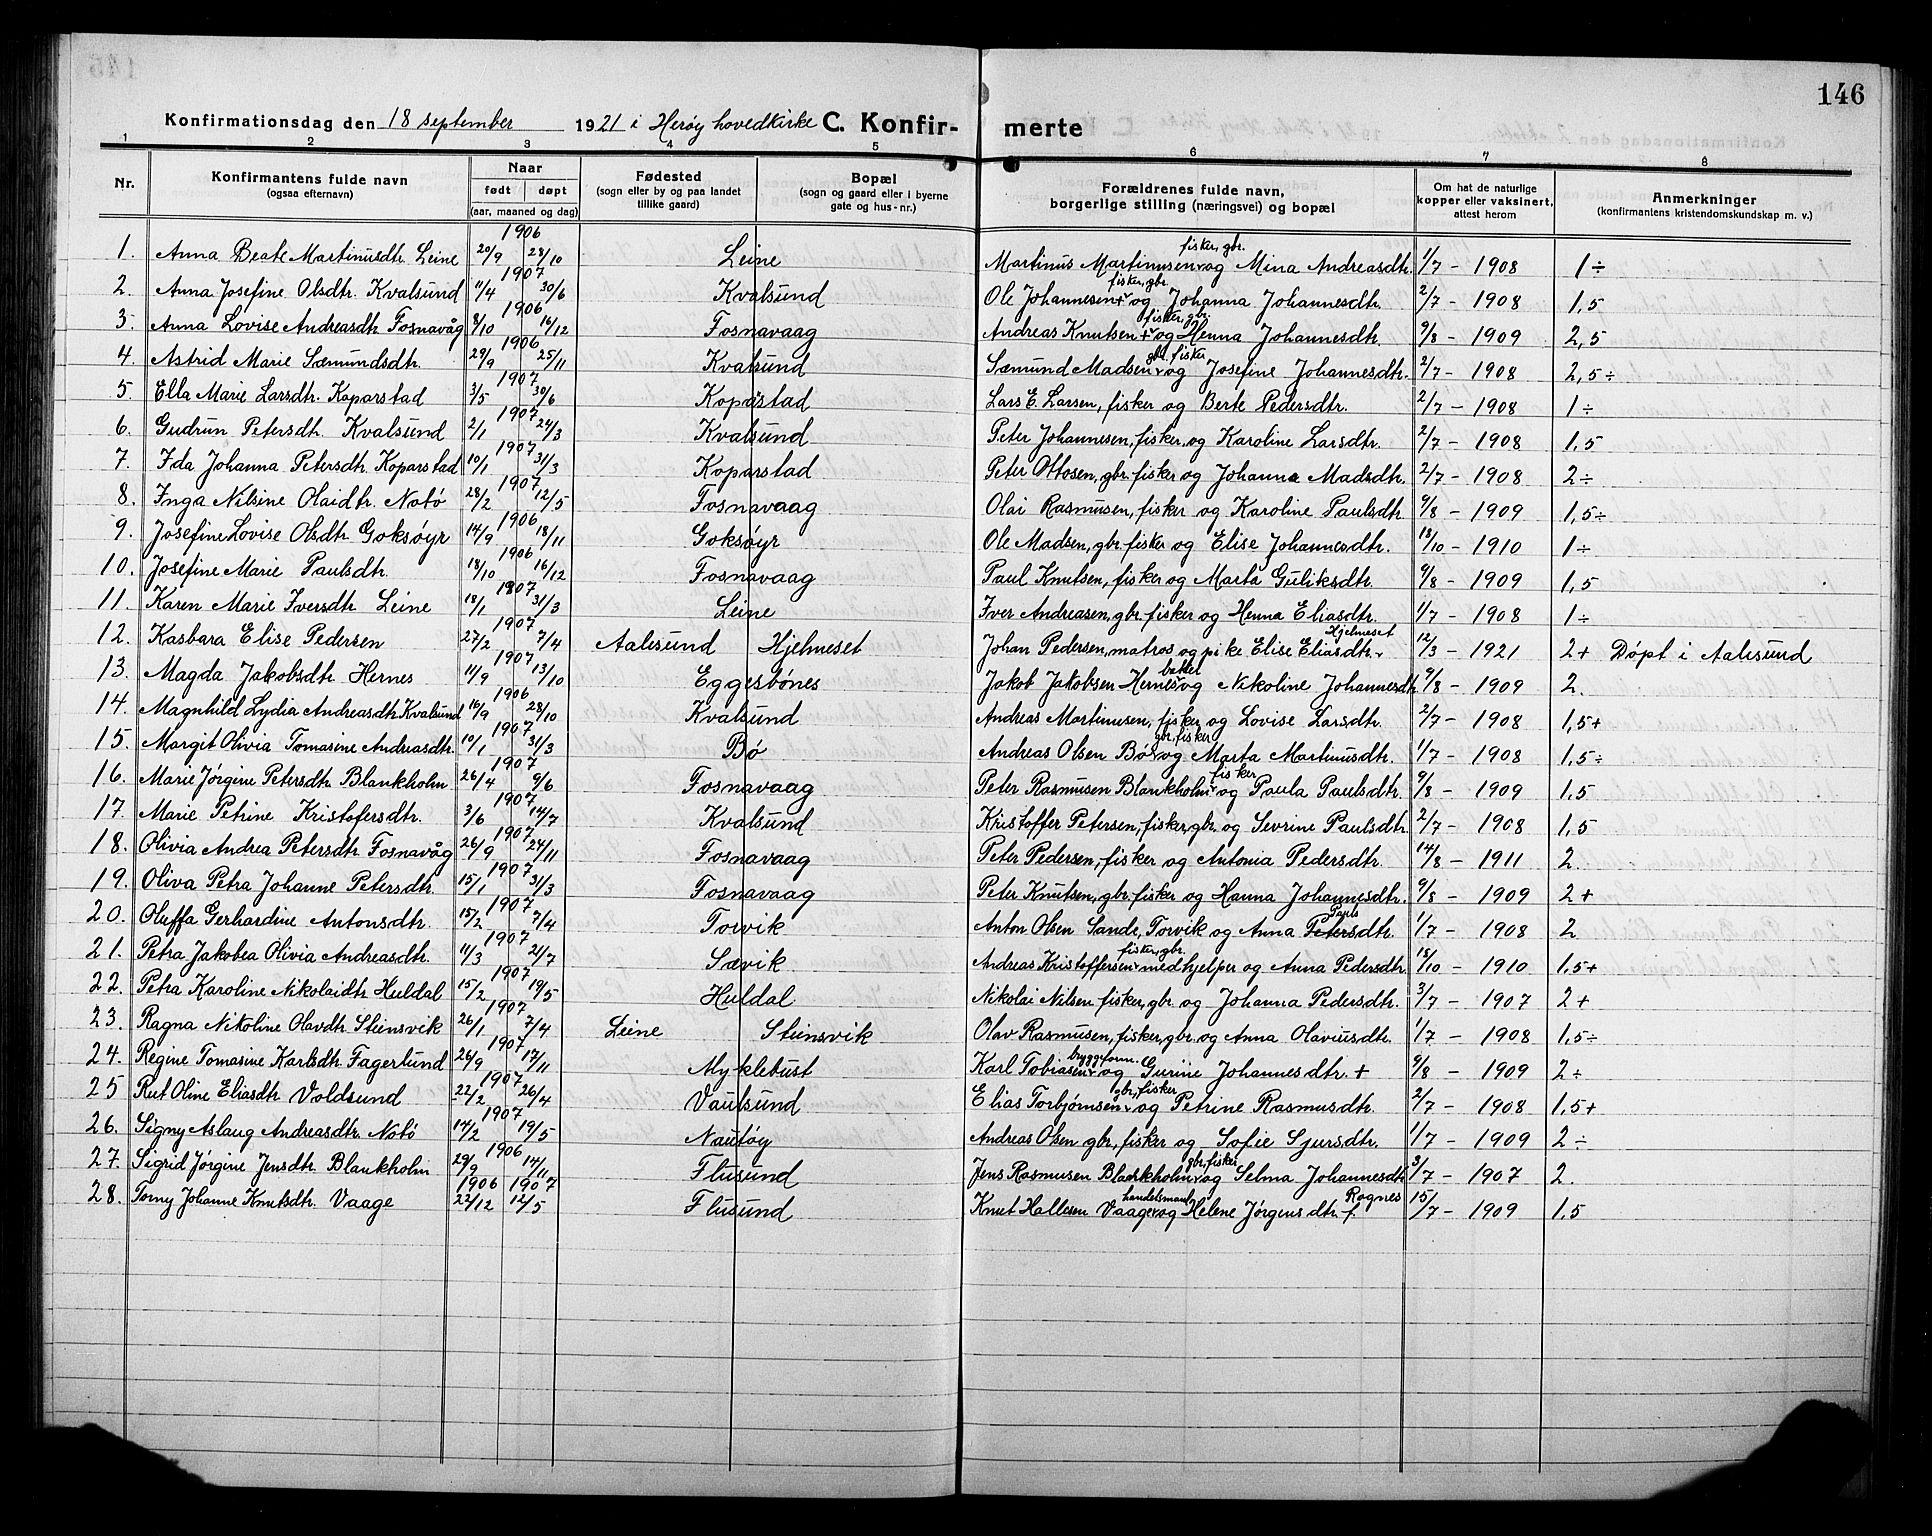 146
Konfirmationsdag den 18 september 1921 i Herøy hovedkirke C. Konfirmerte
1 2 3 4 5 6 7 8
Nr. Konfirmantens fulde navn (ogsaa efternavn) Naar født døpt (aar, maaned og dag) Fødested (sogn eller by og paa landet tillike gaard) Bopæl (sogn og gaard eller i byerne gate og hus-nr.) Forældrenes fulde navn, borgerlige stilling (næringsvei) og bopæl Om hat de naturlige kopper eller vaksinert, attest herom Anmerkninger (konfirmantens kristendomskundskap m. v.)
1. Anna Beate Martinusdtr. Leine 1906 20/9 28/10 Leine Martinus Martinusen fisker, gbr. og Mina Andreasdtr. 1/7 - 1908 1÷
2. Anna Josefine Olsdtr. Kvalsund 1907 11/4 30/6 Kvalsund Ole Johannesen + fisker, gbr. og Johanna Johannesdtr. 2/7 - 1908 1,5
3. Anna Lovise Andreasdtr Fosnavåg 1906 8/10 16/12 Fosnavaag Andreas Knutsen + fisker, gbr. og Henna Johannesdtr. 9/8 - 1909 2,5
4. Astrid Marie Sæmundsdtr. 1906 29/9 25/11 Kvalsund Sæmund Madsen gbr. fisker og Josefine Johannesdtr. 2/7 - 1908 2,5÷
5. Ella Marie Larsdtr. Koparstad 1907 3/5 30/6 Koparstad Lars E. Larsen, fisker og Berte Pedersdtr. 2/7 - 1908 1÷
6. Gudrun Petersdtr. Kvalsund 1907 2/1 24/3 Kvalsund Peter Johannesen, fisker, og Karoline Larsdtr. 2/7 - 1908 1,5
7. Ida Johanna Petersdtr. Koparstad 1907 10/1 31/3 Koparstad Peter Ottosen, gbr. fisker og Johanna Madsdtr. 2/7 - 1908 2÷
8. Inga Nilsine Olaidtr. Notø 1907 28/2 12/5 Fosnavaag Olai Rasmusen, fisker og Karoline Paulsdtr. 9/8 - 1909 1,5÷
9. Josefine Lovise Olsdtr Goksøyr 1906 14/9 18/11 Goksøyr Ole Madsen, gbr. fisker og Elise Johannesdtr. 18/10 - 1910 1÷
10. Josefine Marie Paulsdtr. 1906 18/10 16/12 Fosnavaag Paul Knutsen, fisker og Marta Guliksdtr. 9/8 - 1909 1,5
11. Karen Marie Iversdtr Leine 1907 18/1 31/3 Leine Iver Andreasen, gbr. fisker og Henna Eliasdtr. 1/7 - 1908 1÷
12. Kasbara Elise Pedersen 1907 27/2 7/4 Aalesund Hjelmeset Johan Pedersen, matros og pike Elise Eliasdtr. Hjelmeset 12/3 - 1921 2+ Døpt i Aalesund
13. Magda Jakobsdtr Hernes 1907 11/9 13/10 Eggesbønes Jakob Jakobsen Hernes og Nikoline Johannesdtr. 9/8 - 1909 2.
14. Magnhild Lydia Andreasdtr Kvalsund 1906 16/9 28/10 Kvalsund Andreas Martinusen, fisker og Lovise Larsdtr. 2/7 - 1908 1,5+
15. Margit Olivia Tomasine Andreasdtr. 1907 10/1 31/3 Bø Andreas Olsen Bø gbr. fisker og Marta Martinusdtr. 1/7 - 1908 1,5÷
16. Marie Jørgine Petersdtr. Blankholm 1907 26/4 9/6 Fosnavaag Peter Rasmusen Blankholm fisker og Paula Paulsdtr. 9/8 - 1909 1,5
17. Marie Petrine Kristofersdtr. 1907 3/6 14/7 Kvalsund Kristoffer Petersen, fisker, gbr. og Sevrine Paulsdtr. 2/7 - 1908 1,5
18. Olivia Andrea Petersdtr. Fosnavåg 1907 26/9 24/11 Fosnavaag Peter Pedersen, fisker og Antonia Pedersdtr. 14/8 - 1911 2.
19. Oliva Petra Johanne Petersdtr. 1907 15/1 31/3 Fosnavaag Peter Knutsen, gbr. fisker og Hanna Johannesdtr. 9/8 - 1909 2+
20. Oluffa Gerhardine Antonsdtr. 1907 15/2 7/4 Torvik Anton Olsen Sande, Torvik og Anna Peters Pauls dtr. 1/7 - 1908 2
21. Petra Jakobea Olivia Andreasdtr. 1907 11/3 21/7 Sævik Andreas Kristoffersen fisker, gbr. medhjelper og Anna Pedersdtr. 18/10 - 1910 1,5+
22. Petra Karoline Nikolaidtr. Huldal 1907 15/2 19/5 Huldal Nikolai Nilsen fisker, gbr. og Johanna Pedersdtr. 3/7 - 1907 2+
23. Ragna Nikoline Olavdtr. Steinsvik 1907 26/1 7/4 Leine Steinsvik Olav Rasmusen, fisker, gbr. og Anna Olaviusdtr. 1/7 - 1908 1,5÷
24. Regine Tomasine Karlsdtr. Fagerlund 1907 26/9 17/11 Myklebust Karl Tobiasen og Gurine Johannesdtr. + 9/8 - 1909 2÷
25 Rut Oline Eliasdtr Voldsund 1907 22/2 26/4 Vaulsund Elias Torbjørnsen gbr. fisker og Petrine Rasmusdtr. 2/7 - 1908 1,5+
26. Signy Aslaug Andreasdtr. Notø 1907 14/2 19/5 Nautøy Andreas Olsen gbr., fisker og Sofie Sjursdtr. 1/7 - 1909 2÷
27. Sigrid Jørgine Jensdtr. Blankholm 1906 29/9 14/11 Flusund Jens Rasmusen Blankholm gbr. fisker og Selma Johannesdtr 3/7 - 1907 2.
28. Torny Johanne Knutsdtr. Vaage 1906 1907 22/12 12/5 Flusund Knut Hallesen Vaage handelsmand og Helene Jørgensdtr f. Rognes 15/7 - 1909 1,5